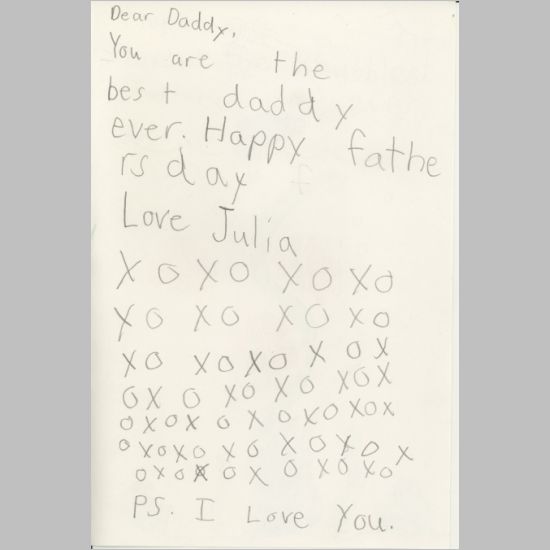 Dear Daddy,
You are the
best daddy
ever. Happy fathe
rs day
Love Julia
X O X O X O X O
X O X O X O X O
X O X O X O X O X
O X O X O X O X O X
O X O X O X O X O X O X
O X O X O X O X O X O X
O X O X O X O X O X O
PS. I Love You.